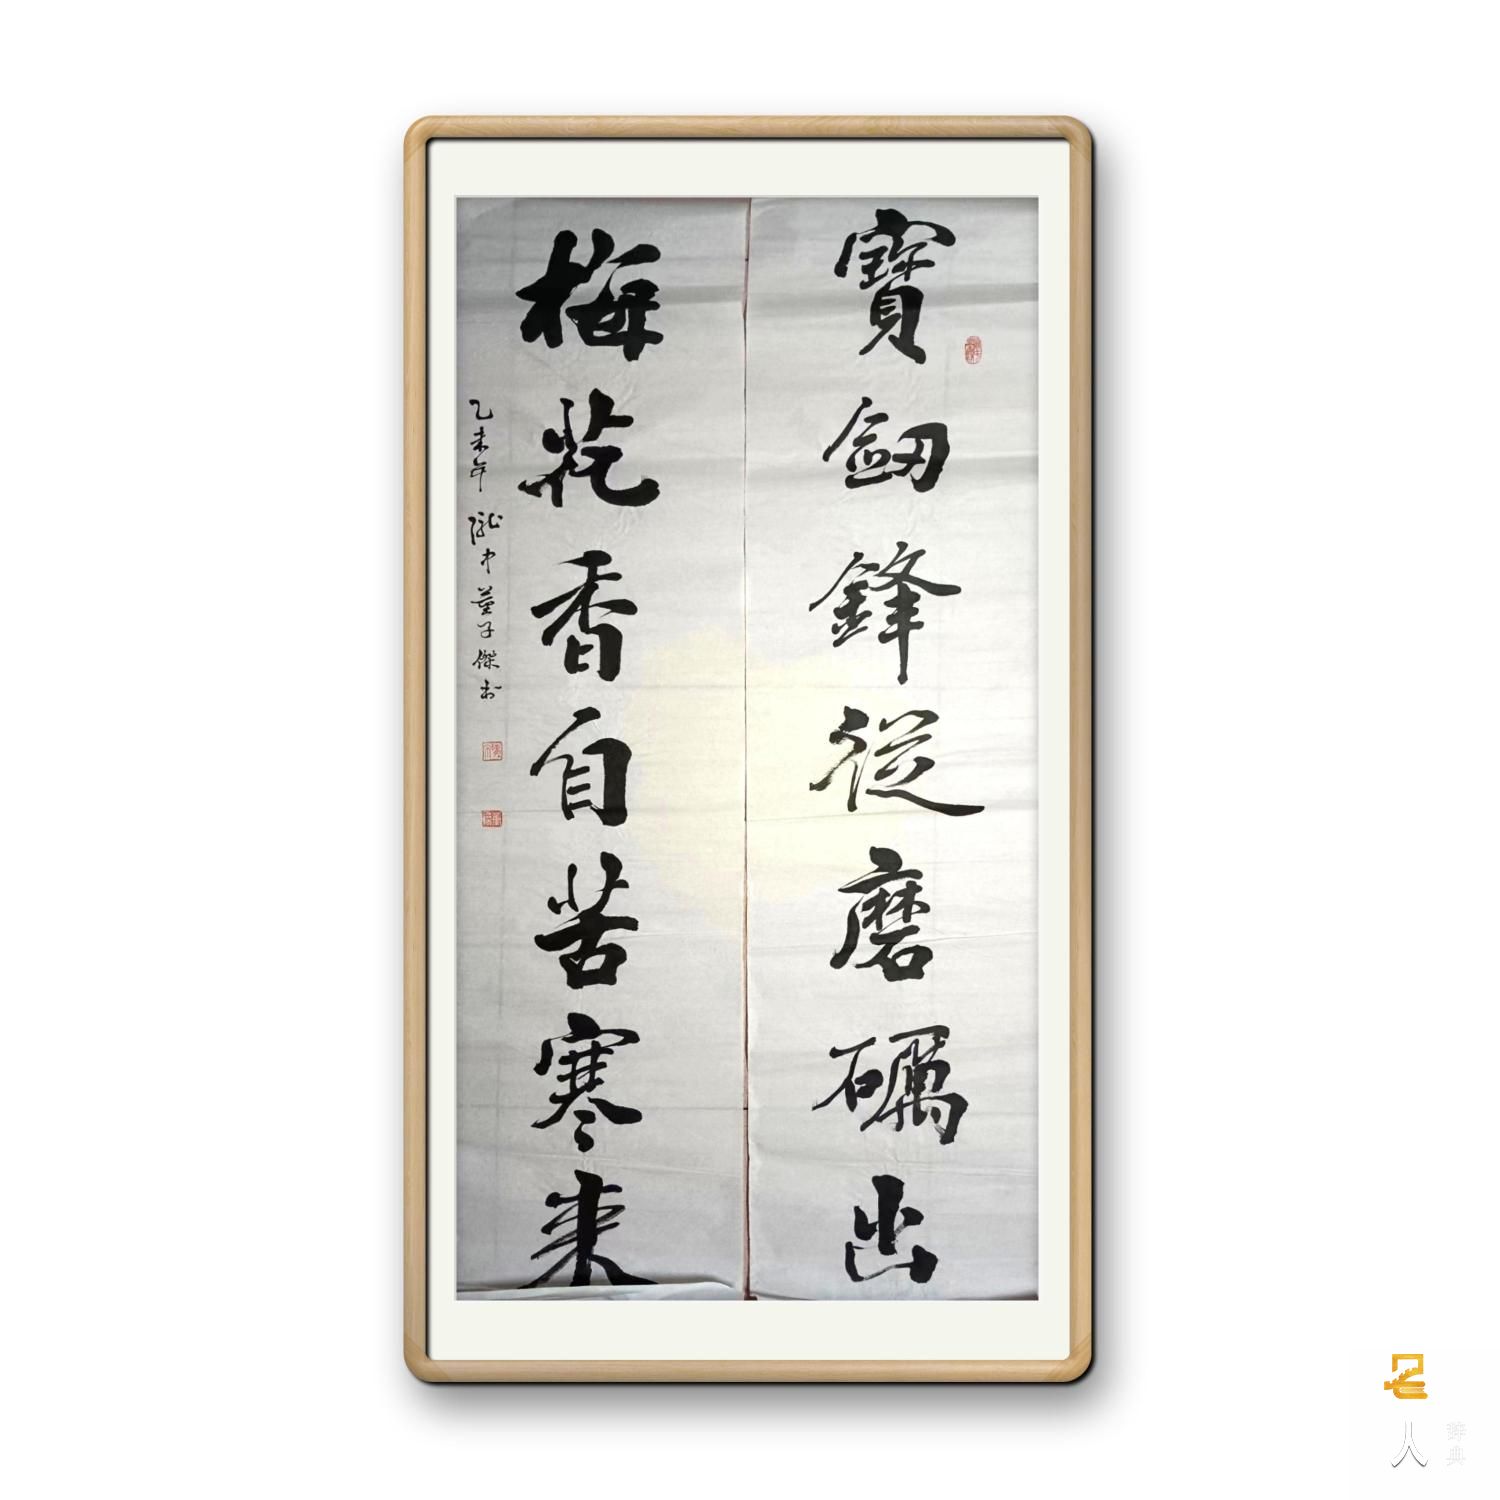 寶劔鋒從磨礪出
梅花香自苦寒來
乙未年 隴中董子傑书
名
人
辞典